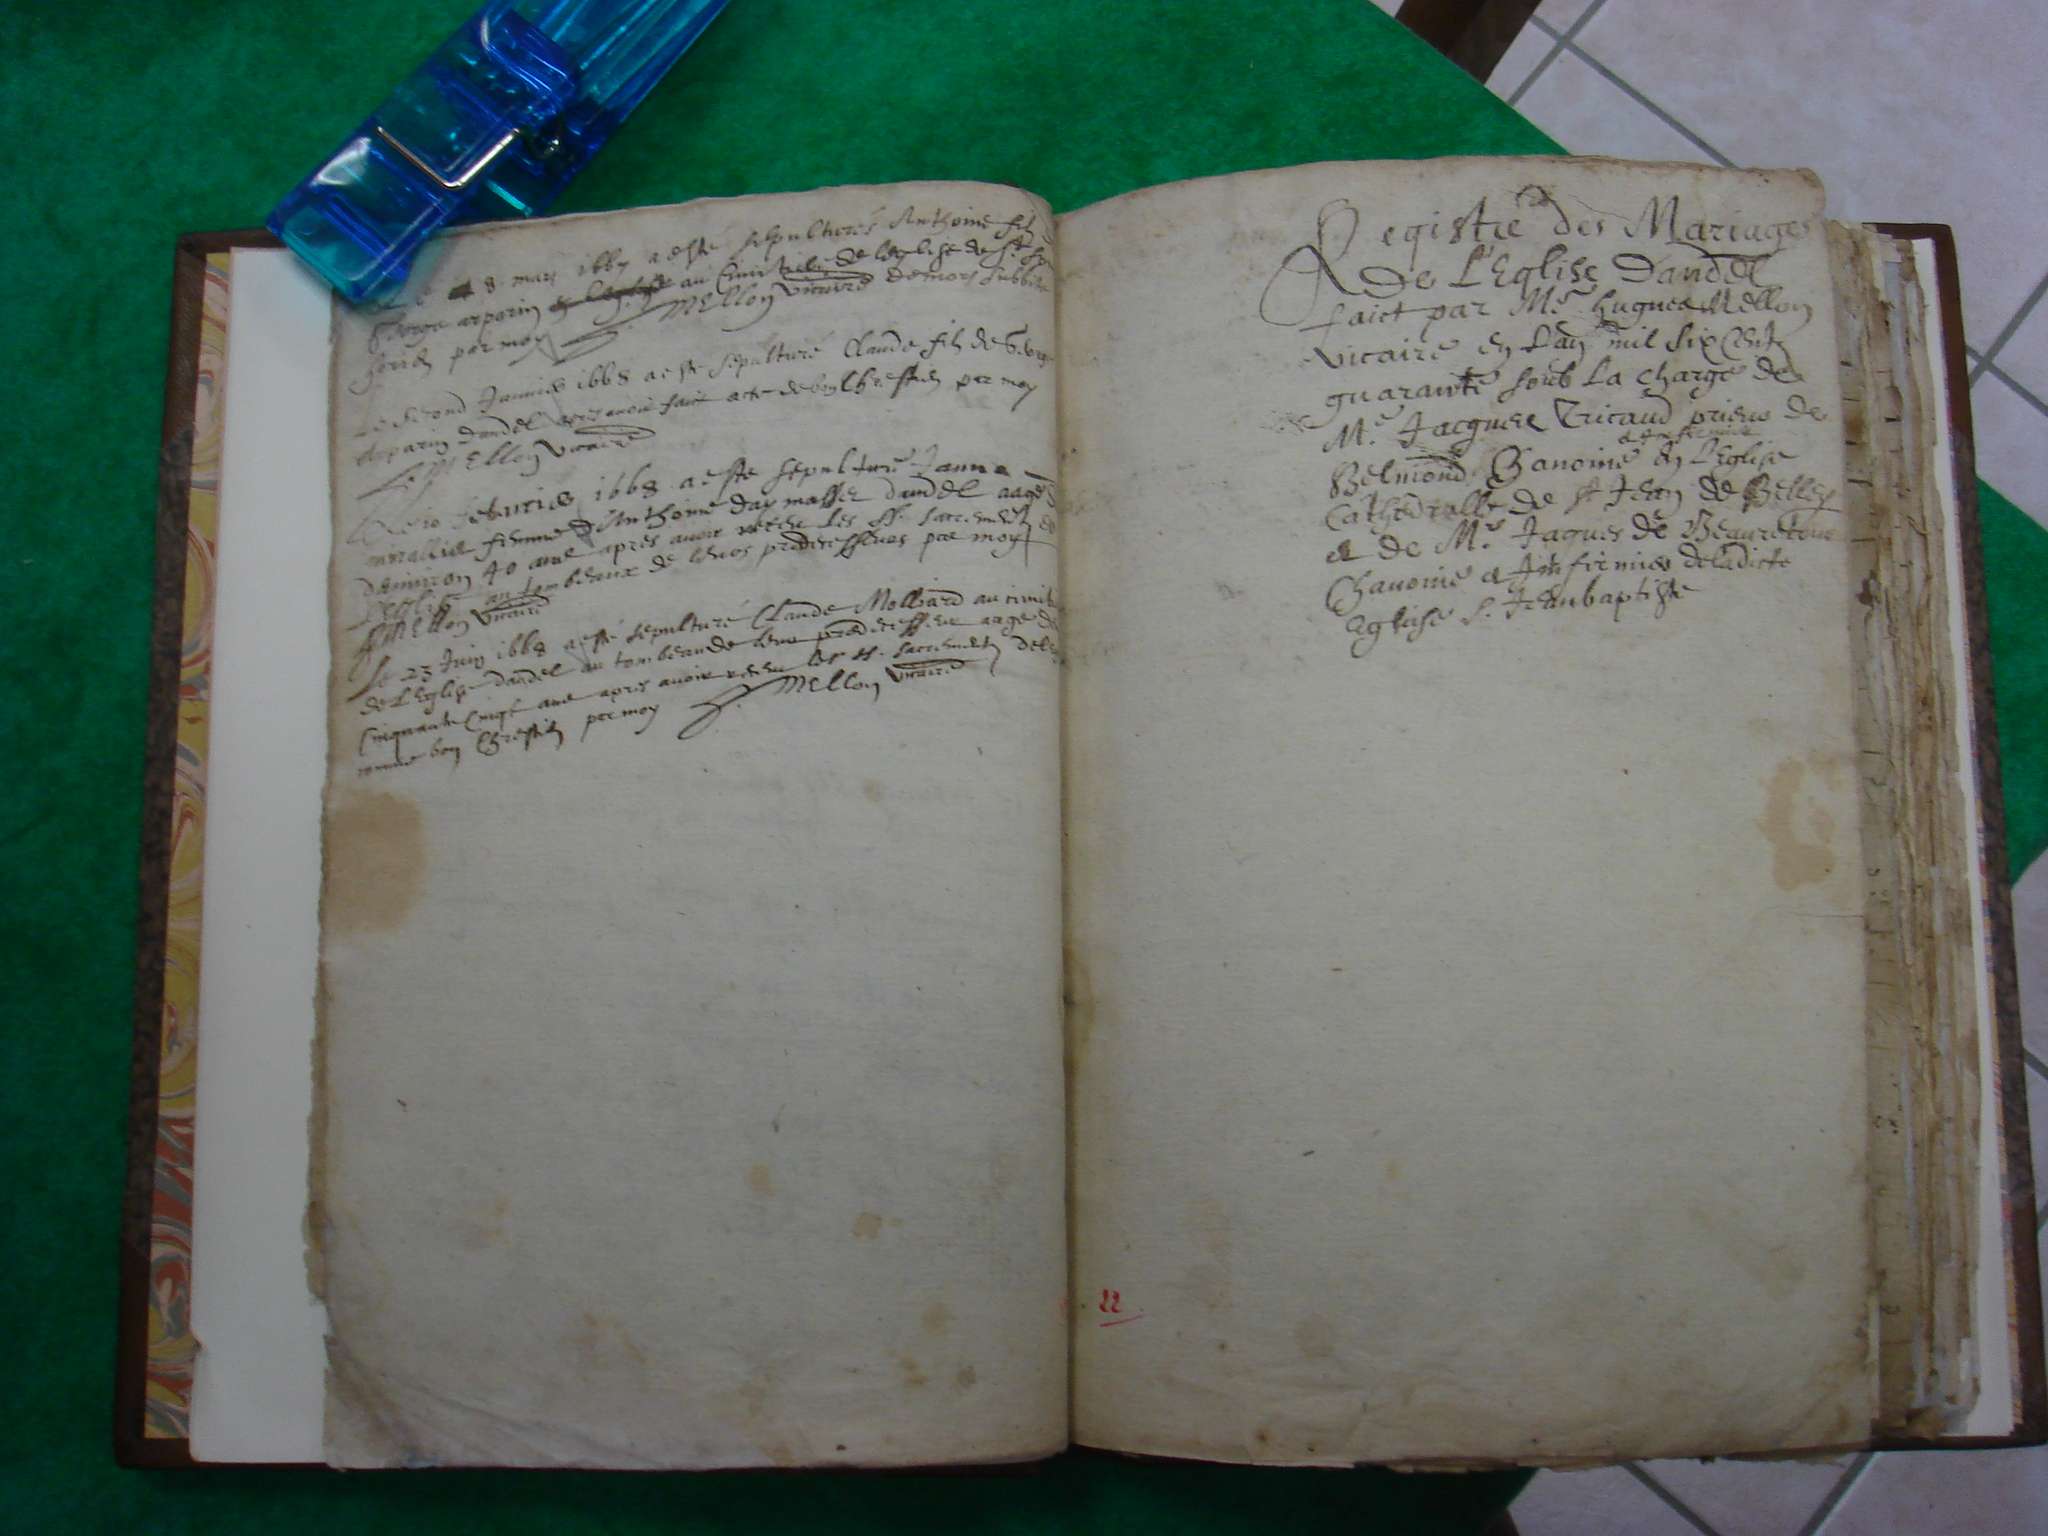 8 mars 1667 a esté sepulturé Anthoine fils
George arparin au Cimitiere de leglise de St
par moy Mellon vicaire de mort subbite
Le second Janvier 1668 a esté sepulturé Claude fils de George
Arparin Dandel apres avoir faict acte de bon Chrestien par moy
Mellon vicaire
Le 10 febvrier 1668 a esté sepulturé Janne
femme d'Anthoine Daymasser Dandel aagé
d'environ 40 ans apres avoir receu les SS. sacrements
l'esglise au tombeaux de leurs predecesseurs par moy
Mellon vicaire
Le 23 Juin 1668 a esté sepulturé Claude Molliard au cimit
de l'Eglise dandel au tombeau de leur predecesseur aagé de
Cinquante Cinq ans apres avoir receu les SS. sacrements
comme bon Chrestien par moy Mellon vicaire
Registre des Mariages
de L'Eglise Dandel
faict par Mre. hugues Mellon
vicaire en Lan mil six Cent
quarante soub La charge de
Mre. Jacques Tricaud prieur de
Belmond Chanoine & Infirmier en L'Eglise
Cathedralle de st Jean de Belley
et de Mre. Jaques de Beauretour
Chanoine et Infirmier de ladicte
Eglise S. Jean baptiste
22